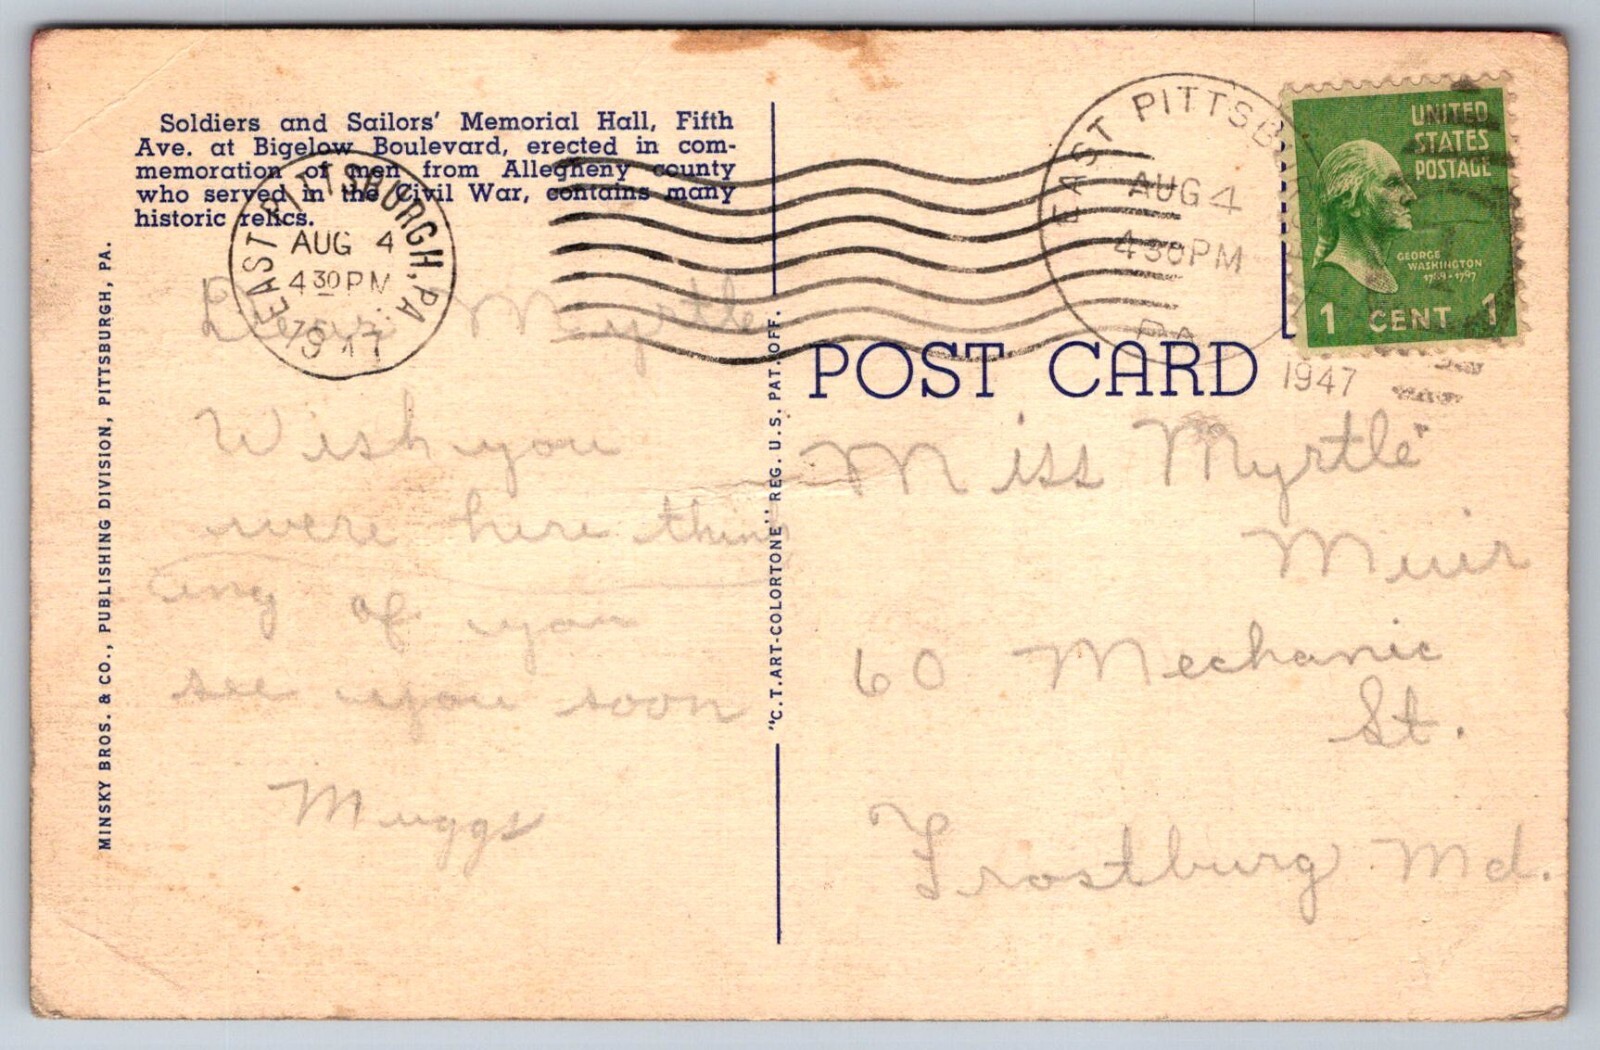 Soldiers and Sailors' Memorial Hall, Fifth
Ave. at Bigelow Boulevard, erected in com-
memoration of men from Allegheny county
who served in the Civil War, contains many
historic relics.
EAST PITTSBURGH, PA.
AUG 4
4 30 PM
1947
MINSKY BROS. & CO., PUBLISHING DIVISION, PITTSBURGH, PA.
Dear Myrtle
Wish you
were here think
ing of you
see you soon
Muggs
"C.T. ART-COLORTONE" REG. U.S. PAT. OFF.
EAST PITTSBURGH
AUG 4
4 30 PM
PA
1947
UNITED
STATES
POSTAGE
GEORGE
WASHINGTON
1789-1797
1 CENT 1
POST CARD
Miss Myrtle
Muir
60 Mechanic
St.
Frostburg Md.